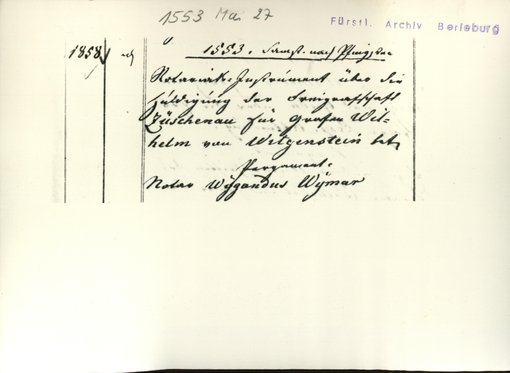 1553 Mai 27
Fürstl. Archiv Berleburg
1858
1553. Samst. nach Pfingsten
Notariats-Instrument über die
Huldigung der Freigrafschaft
Züschenau für Grafen Wil-
helm von Witgenstein
Pergament.
Notar Wÿgandus Wÿmar